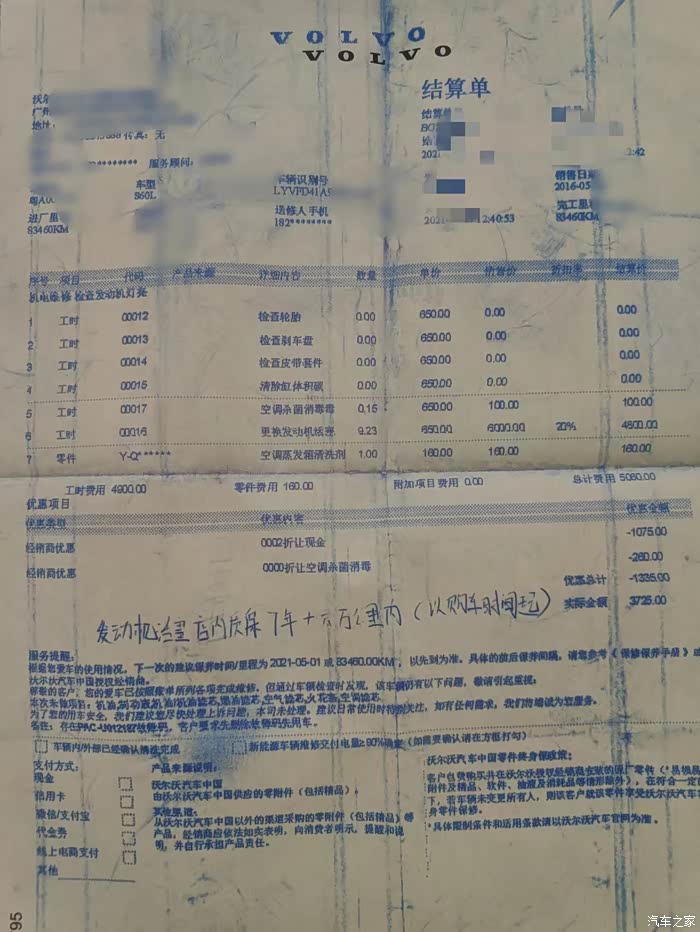 VOLVO
VOLVO
结算单
沃尔
广州
传真: 无
服务顾问:
2:42
车型
S60L
车辆识别号
LYVFD41A9
销售日期
2016-05
进厂里
83460KM
送修人手机
182********
2021 2:40:53
完工里程
83460KM
序号 项目 代码 产品来源 详细内容 数量 单价 销售价 折扣率 结算价
机电维修 检查发动机灯亮
1 工时 00012 检查轮胎 0.00 650.00 0.00 0.00
2 工时 00013 检查刹车盘 0.00 650.00 0.00 0.00
3 工时 00014 检查皮带套件 0.00 650.00 0.00 0.00
4 工时 00015 清除缸体积碳 0.00 650.00 0.00 0.00
5 工时 00017 空调杀菌消毒毒 0.15 650.00 100.00 100.00
6 工时 00016 更换发动机活塞 9.23 650.00 6000.00 20% 4800.00
7 零件 Y-Q****** 空调蒸发箱清洗剂 1.00 160.00 160.00 160.00
工时费用 4900.00 零件费用 160.00 附加项目费用 0.00 总计费用 5060.00
优惠项目
优惠类型 优惠内容 优惠金额
经销商优惠 0002折让现金 -1075.00
经销商优惠 0000折让空调杀菌消毒 -260.00
优惠总计 -1335.00
实际金额 3725.00
发动机 店内质保7年+ 万公里内(以购车时间起)
服务提醒:
根据您爱车的使用情况, 下一次的建议保养时间/里程为 2021-05-01 或 83460.00KM , 以先到为准。具体的前后保养间隔, 请您参考《保修保养手册》或
沃尔沃汽车中国授权经销商。
尊敬的客户, 您的爱车已按照账单所列各项完成维修。但通过车辆检查时发现, 该车辆仍有以下问题, 敬请引起重视:
本次未做项目: 机油,制动液,机油/机油滤芯,空气滤芯,火花塞,空调滤芯
为了您的用车安全, 我们建议您尽快处理上诉问题, 本司未处理。建议日常使用时特别关注, 如有任何需求, 我们将竭诚为您服务。
备注: 存在PAC-U012187故障码, 客户要求先删除故障码先用车。
车辆内/外部已经确认清洗完成
新能源车辆维修交付电量≥90%确定 (如需要确认请在方框打勾)
支付方式:
现金
信用卡
微信/支付宝
代金券
线上电商支付
其他
产品来源说明:
沃尔沃汽车中国
由沃尔沃汽车中国供应的零附件 (包括精品) 。
其他渠道:
从沃尔沃汽车中国以外的渠道采购的零附件 (包括精品) 等
产品, 经销商应依法如实表明, 向消费者明示、提醒和说
明, 并自行承担产品责任。
沃尔沃汽车中国零件终身保政策:
客户自费购买并在沃尔沃授权经销商安装的原厂零件 (*易损品
附件及精品、软件、油液及消耗品等情形除外) , 在符合一定
下, 若车辆未变更所有人, 则该客户就该零件享受沃尔沃汽车
身零件保修。
*具体限制条件和适用条款请以沃尔沃汽车官网为准。
95
汽车之家